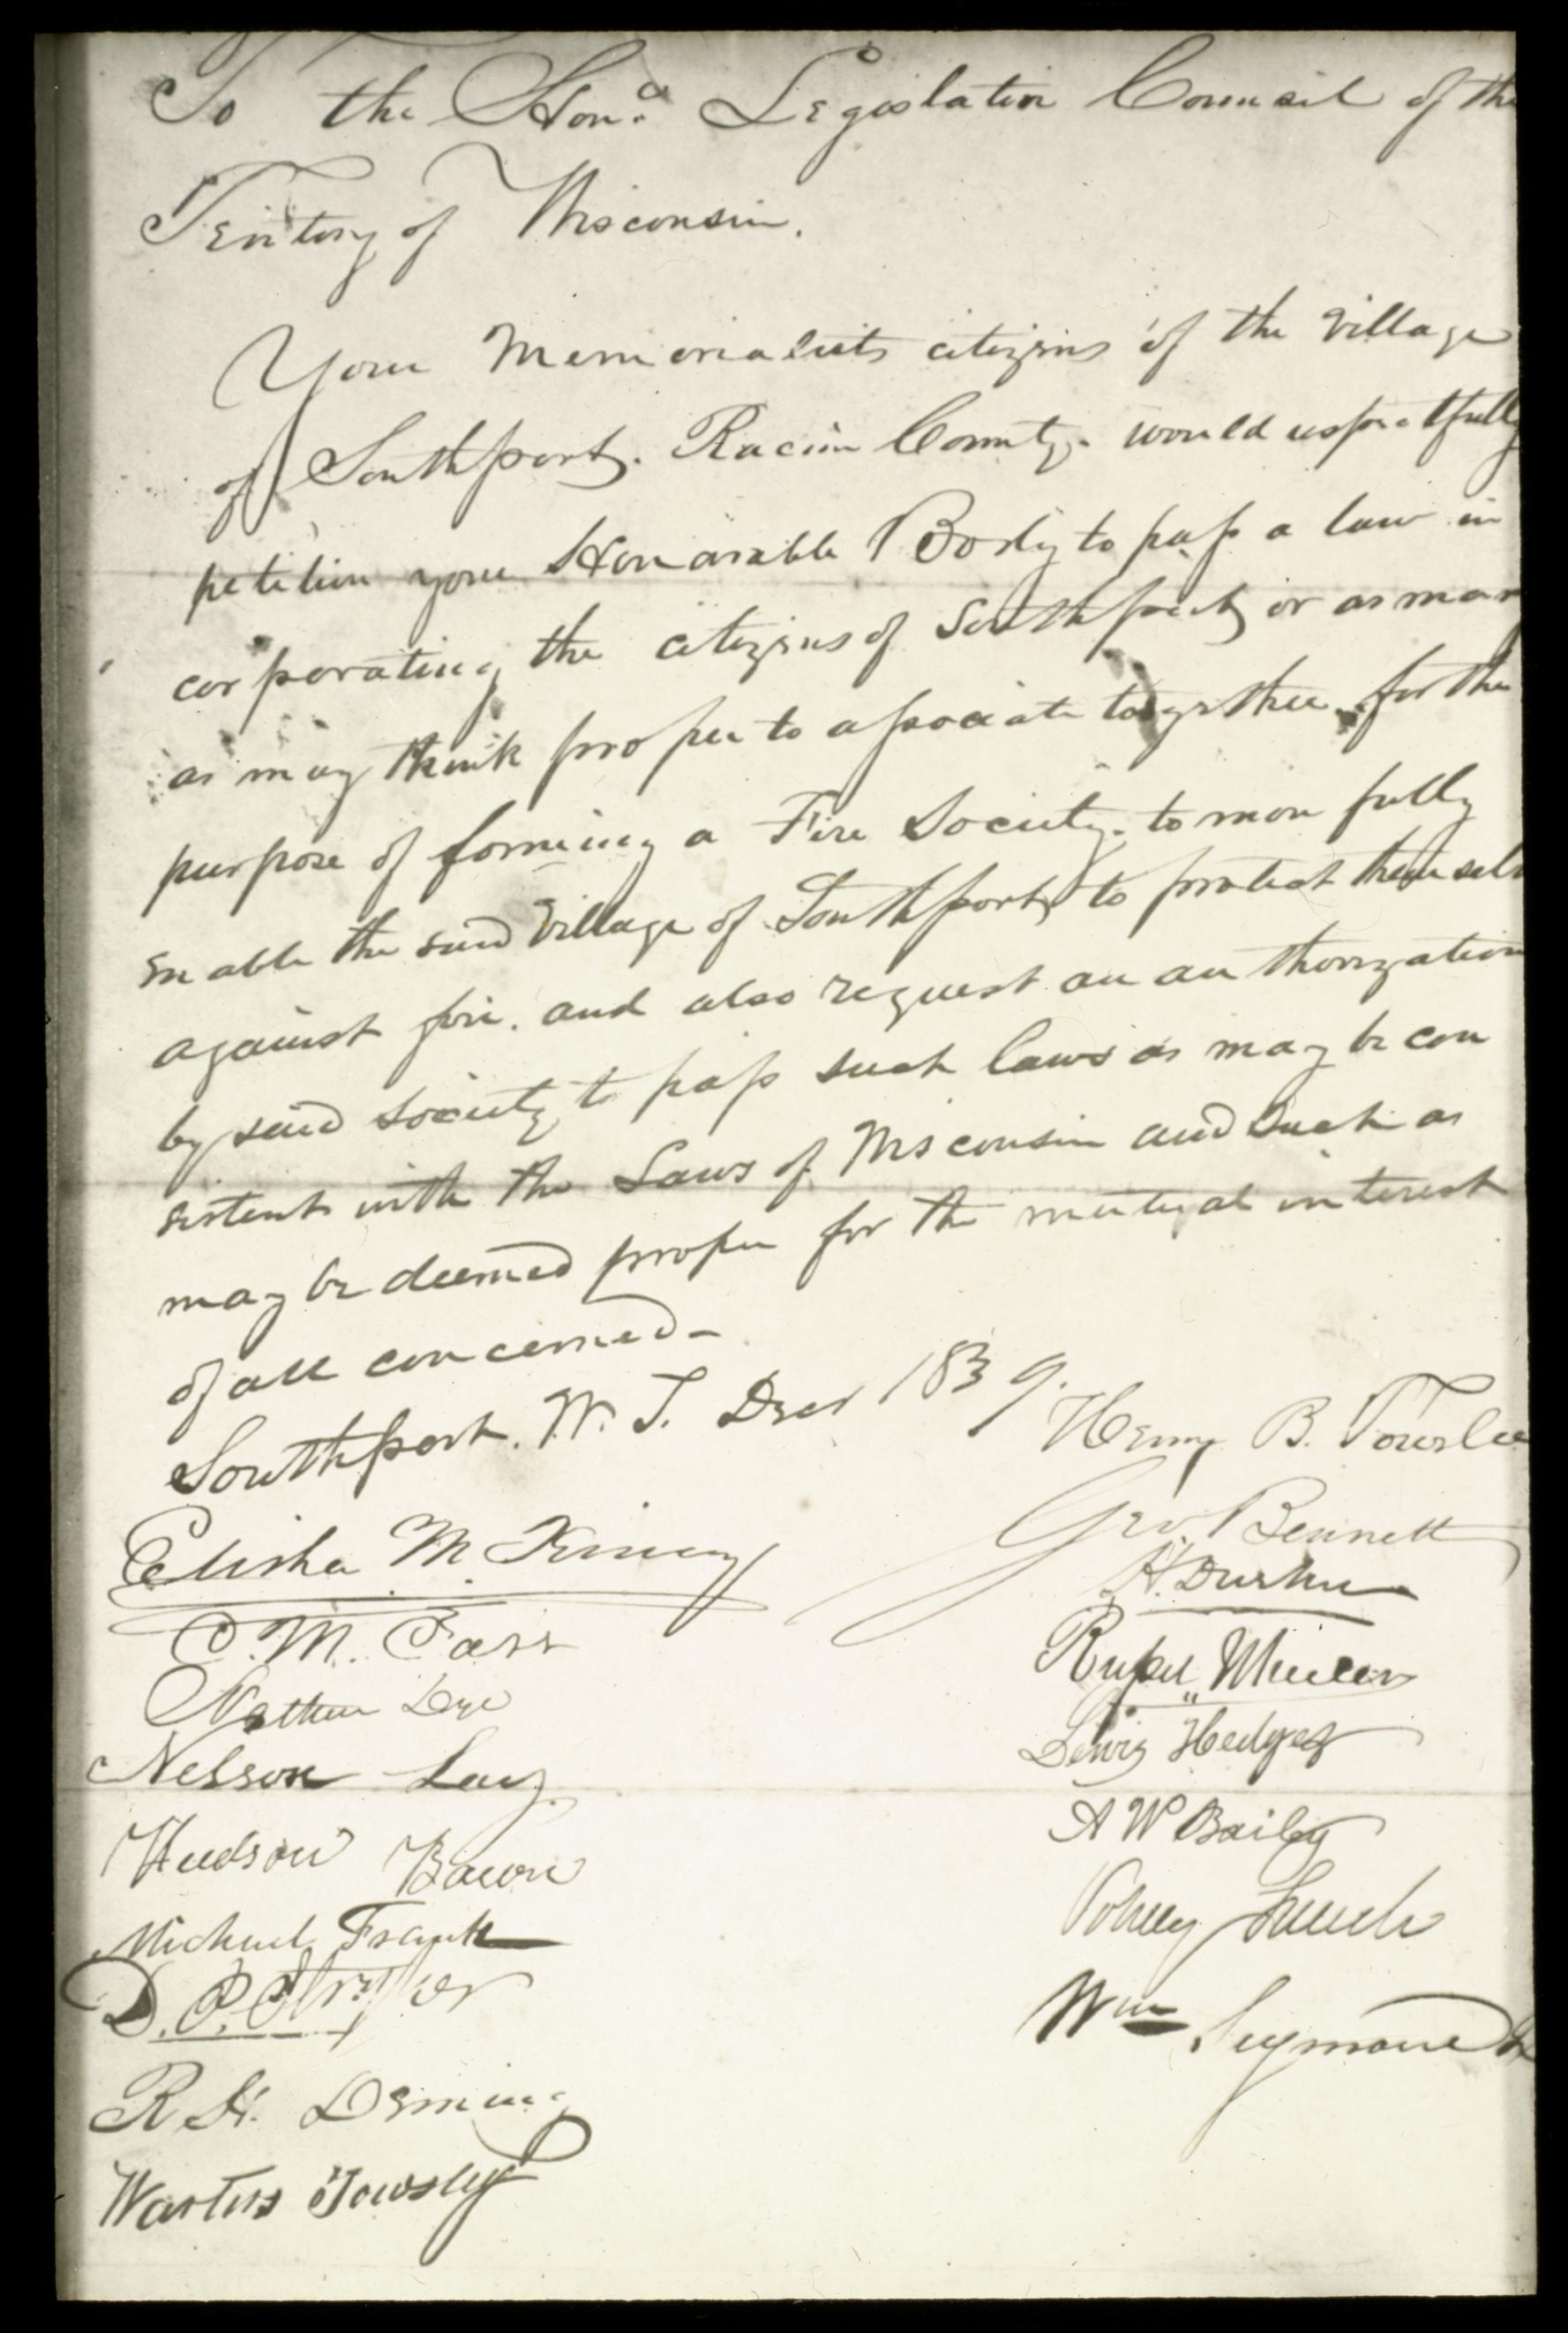 To the Hon.d Legislative Council of the
Territory of Wisconsin.
Your Memorialists citizens of the Village
of Southport. Racine County. would respectfully
petition your Honorable Body to pass a law in
corporating the citizens of Southport, or as man
as may think proper to associate together for the
purpose of forming a Fire Society. to more fully
enable the said Village of Southport, to protect themselv
against fire. and also request an authorization
by said Society, to pass such laws as may be con
sistent with the Laws of Wisconsin and such as
may be deemed proper for the mutual interest
of all concerned -
Southport. W. T. Decr 1839.
Henry B. Towslee
Elisha M Kinney
Geo. Bennett
H. Durkee
Nathan Dye
Lewis Hedges
Nelson Lay
A W Bailey
Hudson Bacon
Volney French
Michael Frank
Wm Seymour
R H. Deming
Towsley